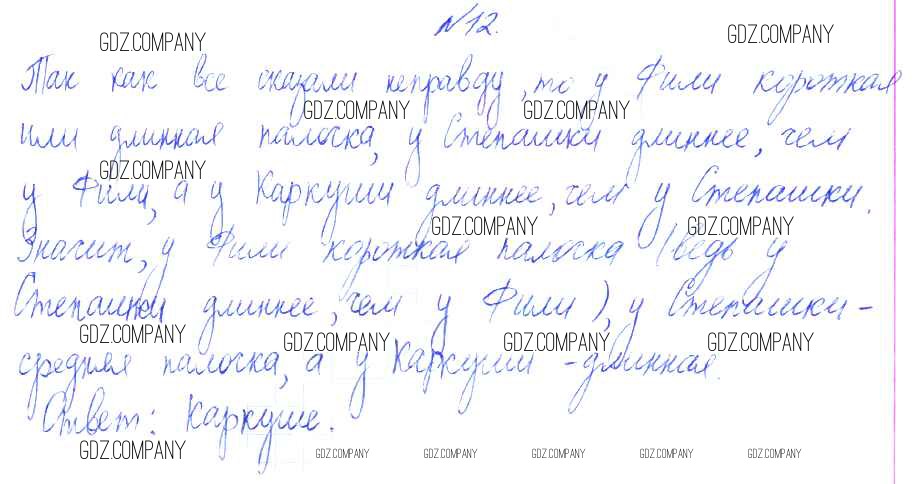 №12.
GDZ.COMPANY GDZ.COMPANY
Так как все сказали неправду, то у Фили короткая
GDZ.COMPANY GDZ.COMPANY
или длинная палочка, у Степашки длиннее, чем
GDZ.COMPANY
у Фили, а у Каркуши длиннее, чем у Степашки.
GDZ.COMPANY GDZ.COMPANY
Значит, у Фили короткая палочка (ведь у
Степашки длиннее, чем у Фили), у Степашки -
GDZ.COMPANY GDZ.COMPANY GDZ.COMPANY GDZ.COMPANY
средняя палочка, а у Каркуши - длинная.
Ответ: Каркуше.
GDZ.COMPANY GDZ.COMPANY GDZ.COMPANY GDZ.COMPANY GDZ.COMPANY GDZ.COMPANY